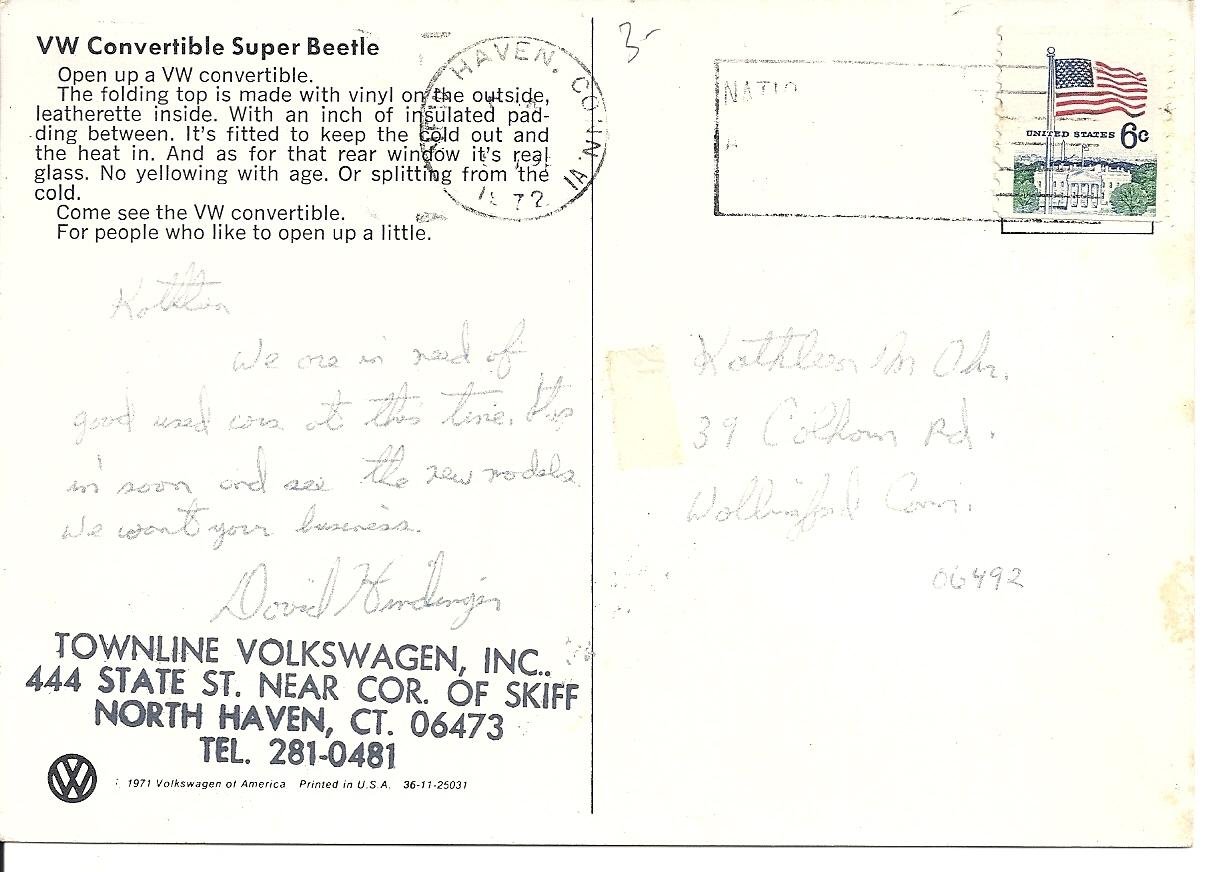 VW Convertible Super Beetle
Open up a VW convertible.
The folding top is made with vinyl on the outside,
leatherette inside. With an inch of insulated pad-
ding between. It's fitted to keep the cold out and
the heat in. And as for that rear window it's real
glass. No yellowing with age. Or splitting from the
cold.
Come see the VW convertible.
For people who like to open up a little.
Kathleen
We are in need of
good used cars at this time.
in soon and see the new models
We want your business.
David
TOWNLINE VOLKSWAGEN, INC..
444 STATE ST. NEAR COR. OF SKIFF
NORTH HAVEN, CT. 06473
TEL. 281-0481
1971 Volkswagen of America Printed in U.S.A. 36-11-25031
HAVEN, CONN.
1972
3-
UNITED STATES 6c
Kathleen M
39 Colhoun Rd.
Wallingford Conn.
06492